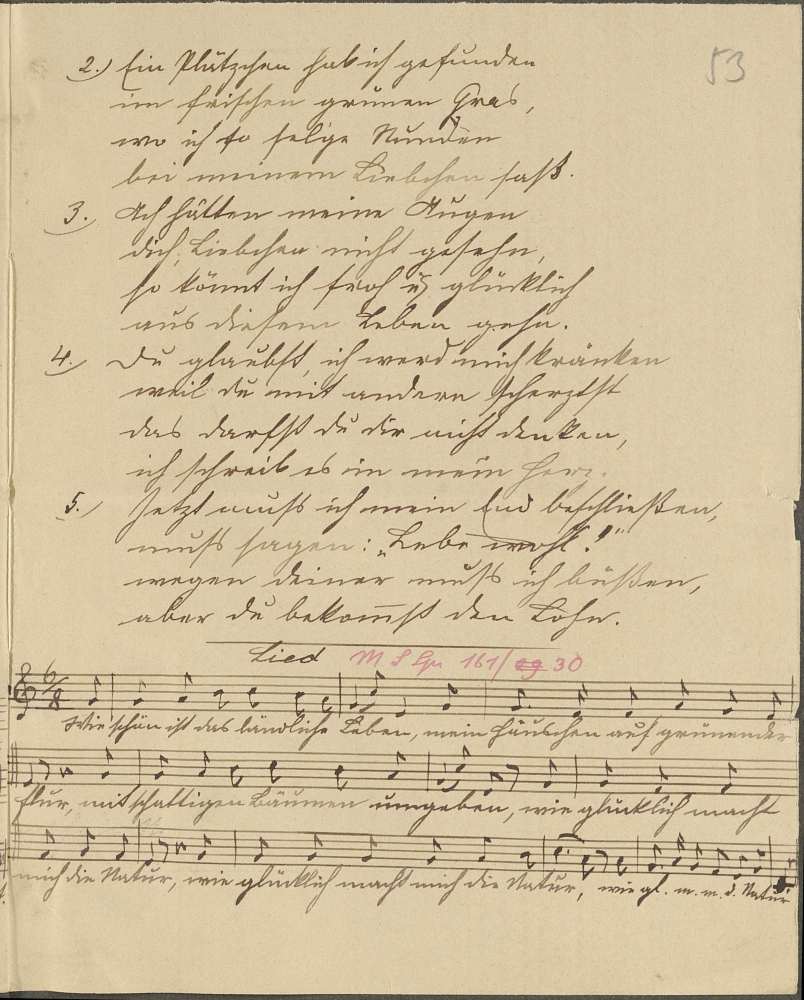 53
2.) Ein Plätzchen hab ich gefunden
im frischen grünen Gras,
wo ich so selge Stunden
bei meinem Liebchen saß.
3. Ach hätten meine Augen
dich, Liebchen nicht gesehn,
so könnt ich froh u. glücklich
aus diesem Leben gehn.
4. Du glaubst, ich werd mich kränken
weil du mit andern scherzst
das darfst du dir nicht denken,
ich schreib es in mein Herz.
5. Jetzt muss ich mein Lied beschließen,
muss sagen: „Lebe wohl!"
wegen deiner muss ich büßen,
aber du bekommst den Lohn.
Lied 161/ 30
6/8
Wie schön ist das ländliche Leben, mein Häuschen auf grünender
Flur, mit schattigen Bäumen umgeben, wie glücklich macht
mich die Natur, wie glücklich macht mich die Natur, wie gl. m. m. d. Natur